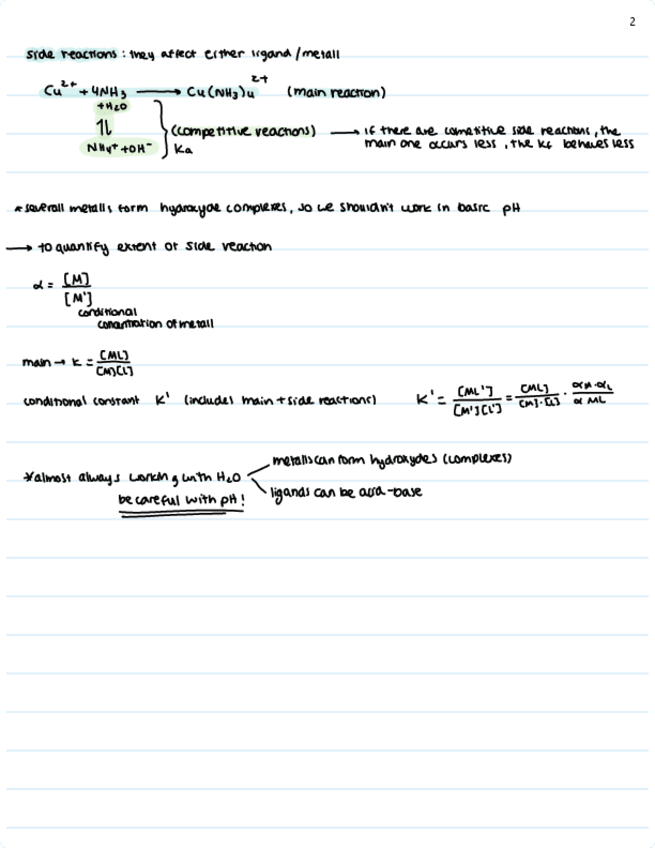 2
side reactions : they affect either ligand / metall
Cu²⁺ + 4NH₃ ⟶ Cu(NH₃)₄²⁺ (main reaction)
+H₂O
⇌ (competitive reactions) ⟶ if there are cometitive side reactions, the
main one occurs less, the Kf behaves less
NH₄⁺ + OH⁻ Ka
* severall metalls form hydroxyde complexes, so we shouldn't work in basic pH
⟶ to quantify extent of side reaction
α = [M] / [M']
conditional
concentration of metall
main → K = [ML] / [M][L]
conditional constant K' (includes main + side reactions) K' = [ML'] / [M'][L'] = [ML] / [M]·[L] · αM·αL / αML
metalls can form hydroxydes (complexes)
*almost always working with H₂O
be careful with pH! ligands can be acid-base